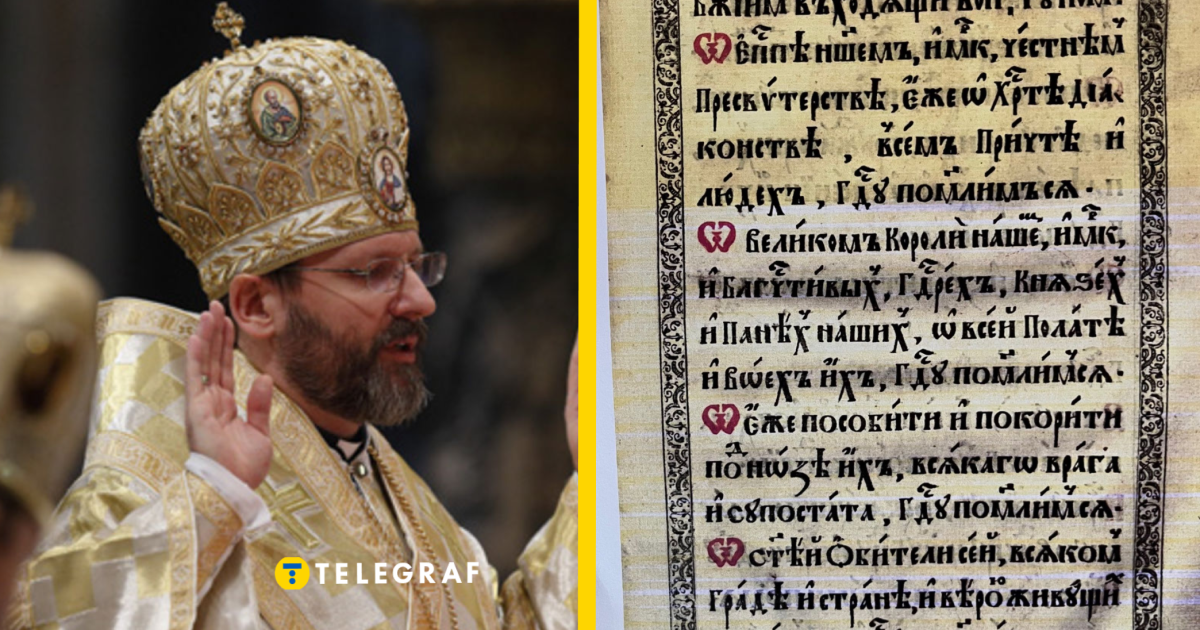 TELEGRAF
Ѿ Еп҃пѣ на́шемъ, и҆́м҃к, че́стнѣм
Пресвѵ́терствѣ, є҆́же ѡ҆ Хрⷭ҇тѣ Дїа́-
конствѣ, всѣ́мъ При́чтѣ и҆
лю́дехъ, Гдⷭ҇ꙋ помо́лимъсѧ.
Ѿ вели́комъ Короли̏ на́ше, и҆м҃к,
и҆ Благчⷭ҇ти́выхъ, Гдⷭ҇ре́хъ, Кнѧѕе́х
и҆ Панѣ́хъ на́шихъ, ѡ҆ все́й Пола́тѣ
и҆ во́ехъ и҆́хъ, Гдⷭ҇ꙋ помо́лимсѧ.
Ѿ є҆́же пособи́ти и҆ покори́ти
под̾ но́зѣ и҆́хъ, всѧ́кагѡ вра́га
и҆ сꙋпоста́та, Гдⷭ҇ꙋ помо́лимсѧ.
Ѿ ст҃ѣ́й Ѻ҆би́тели се́й, всѧ́ком
гра́дѣ и҆ стра́нѣ, и҆ вѣ́рою живꙋщи